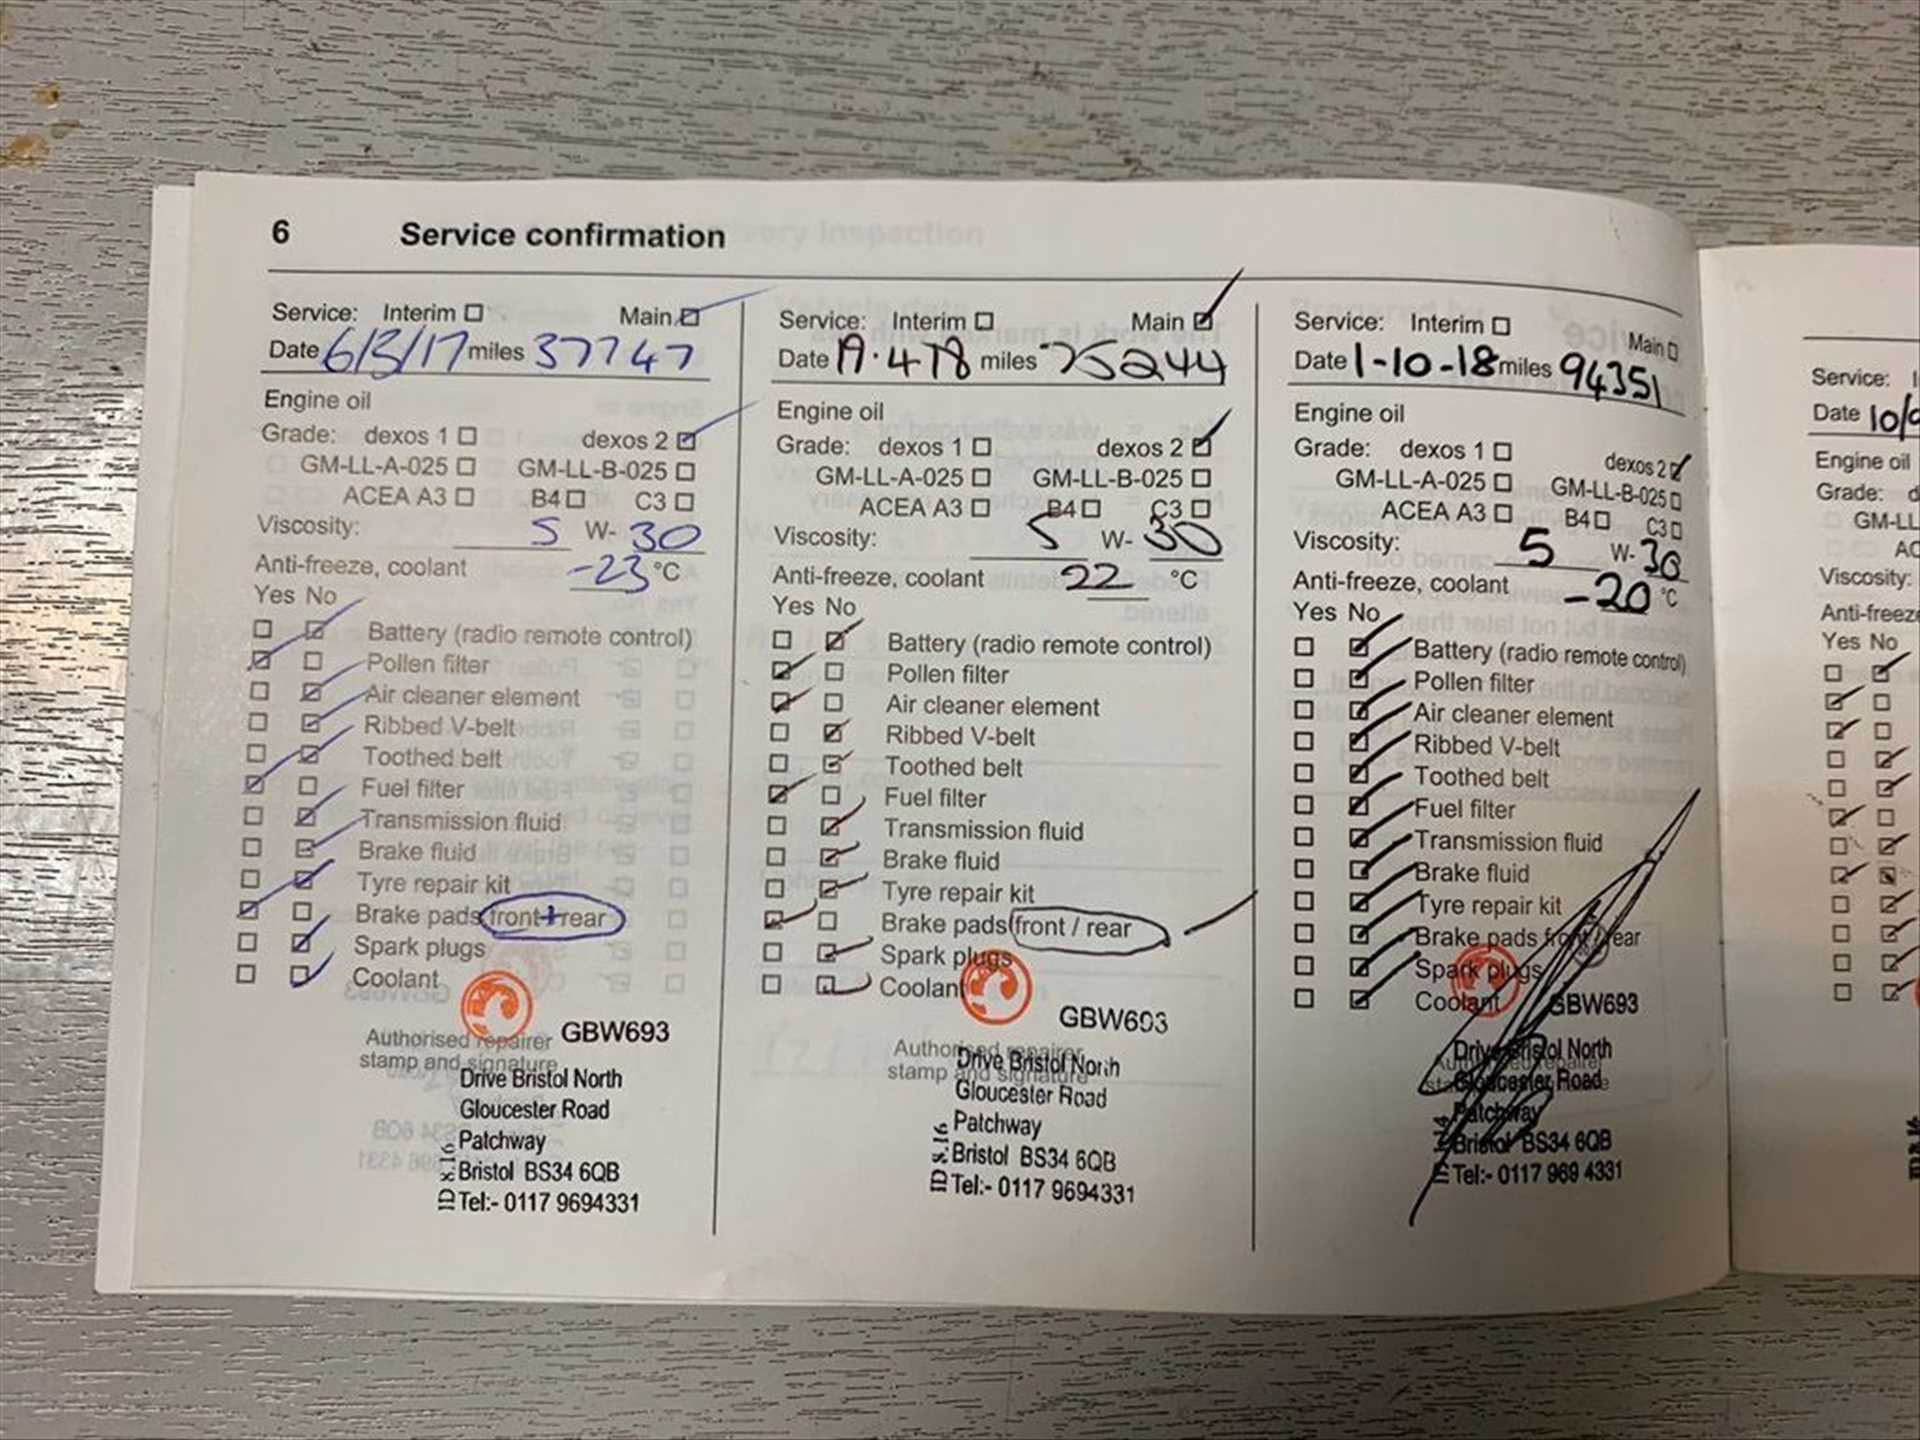 6 Service confirmation
Service: Interim Main
Date 6/3/17 miles 37747
Engine oil
Grade: dexos 1 dexos 2
GM-LL-A-025 GM-LL-B-025
ACEA A3 B4 C3
Viscosity: 5 W- 30
Anti-freeze, coolant -23 °C
Yes No
Battery (radio remote control)
Pollen filter
Air cleaner element
Ribbed V-belt
Toothed belt
Fuel filter
Transmission fluid
Brake fluid
Tyre repair kit
Brake pads front + rear
Spark plugs
Coolant
GBW693
Authorised repairer
stamp and signature
Drive Bristol North
Gloucester Road
Patchway
Bristol BS34 6QB
Tel:- 0117 9694331
Service: Interim Main
Date 19.4.18 miles 75244
Engine oil
Grade: dexos 1 dexos 2
GM-LL-A-025 GM-LL-B-025
ACEA A3 B4 C3
Viscosity: 5 W- 30
Anti-freeze, coolant 22 °C
Yes No
Battery (radio remote control)
Pollen filter
Air cleaner element
Ribbed V-belt
Toothed belt
Fuel filter
Transmission fluid
Brake fluid
Tyre repair kit
Brake pads front / rear
Spark plugs
Coolant
GBW693
Authorised repairer
stamp and signature
Drive Bristol North
Gloucester Road
Patchway
Bristol BS34 6QB
Tel:- 0117 9694331
Service: Interim Main
Date 1-10-18 miles 94351
Engine oil
Grade: dexos 1 dexos 2
GM-LL-A-025 GM-LL-B-025
ACEA A3 B4 C3
Viscosity: 5 W- 30
Anti-freeze, coolant -20 °C
Yes No
Battery (radio remote control)
Pollen filter
Air cleaner element
Ribbed V-belt
Toothed belt
Fuel filter
Transmission fluid
Brake fluid
Tyre repair kit
Brake pads front / rear
Spark plugs
Coolant
GBW693
Drive Bristol North
Gloucester Road
Patchway
Bristol BS34 6QB
Tel:- 0117 969 4331
Service:
Date 10/
Engine oil
Grade:
GM-LL
Viscosity:
Anti-freeze
Yes No